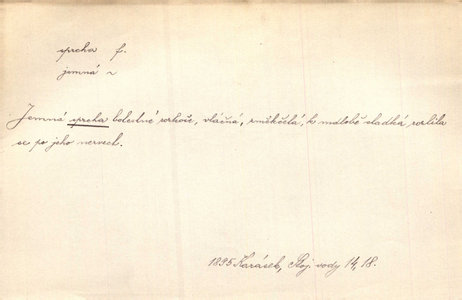 sprcha f.
jemná ~
Jemná sprcha bolestné rozkoše, vláčná, změkčelá, k mdlobě sladká rozlila
se po jeho nervech.
1895 Karásek, Stoj. vody 14, 18.